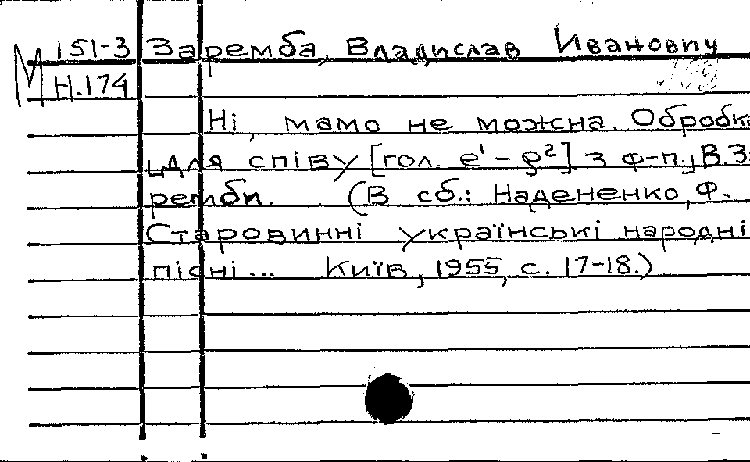 М 151-3 Заремба, Владислав Иванович
Н.174
Ні, мамо не можна. Обробк
для співу [гол. e¹-g²] з ф-п., В.За
ремби. (В сб.: Надененко, Ф.
Старовинні українські народні
пісні... Київ, 1955, с. 17-18.)